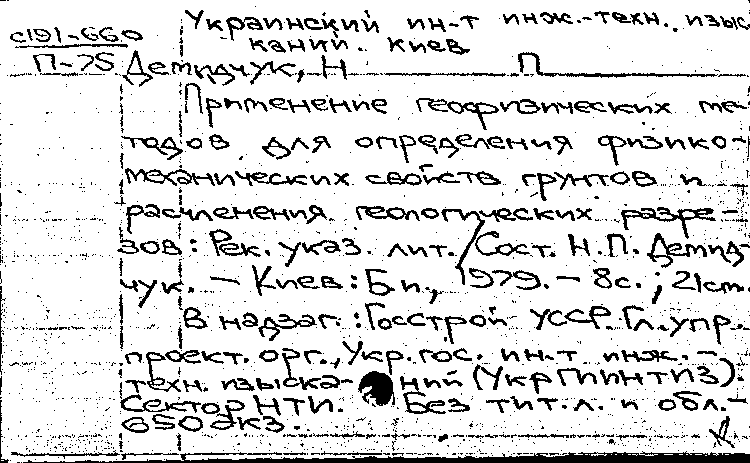 Украинский ин-т инж.-техн. изыс
с191-660
каний. Киев
П-75 Демидчук, Н П
Применение геофизических ме-
тодов для определения физико-
механических свойств грунтов и
расчленения геологических разре-
зов: Рек. указ. лит./Сост. Н.П. Демид-
чук. - Киев: Б.и., 1979. - 8с.; 21см.
В надзаг.: Госстрой УССР. Гл. упр.
проект. орг., Укр. гос. ин-т инж.-
техн. изыска- ний (УкрГИИНТИЗ).
Сектор НТИ. Без тит.л. и обл.-
650экз.